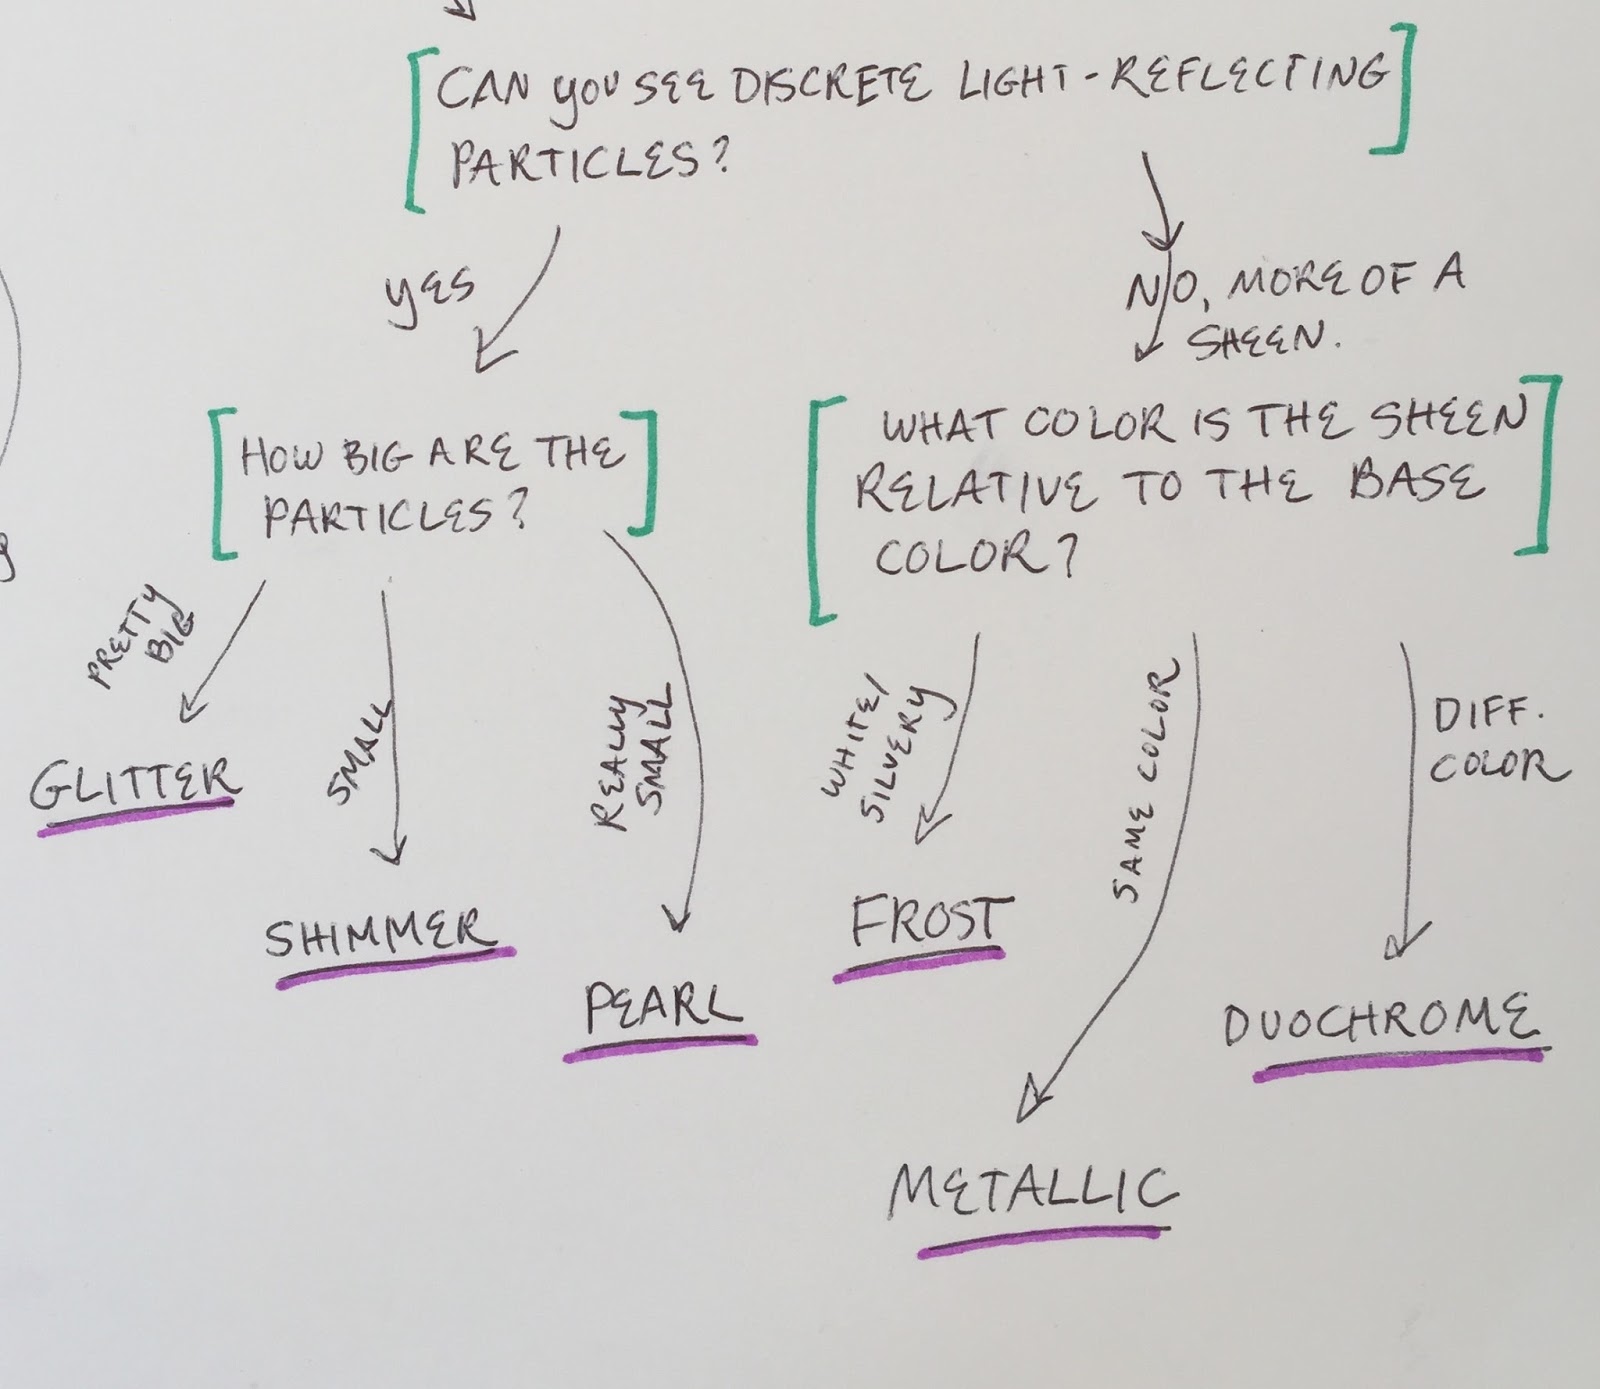 CAN YOU SEE DISCRETE LIGHT-REFLECTING
PARTICLES?
YES
NO, MORE OF A
SHEEN.
HOW BIG ARE THE
PARTICLES?
WHAT COLOR IS THE SHEEN
RELATIVE TO THE BASE
COLOR?
PRETTY
BIG
SMALL
REALLY
SMALL
WHITE/
SILVERY
SAME COLOR
DIFF.
COLOR
GLITTER
SHIMMER
PEARL
FROST
METALLIC
DUOCHROME